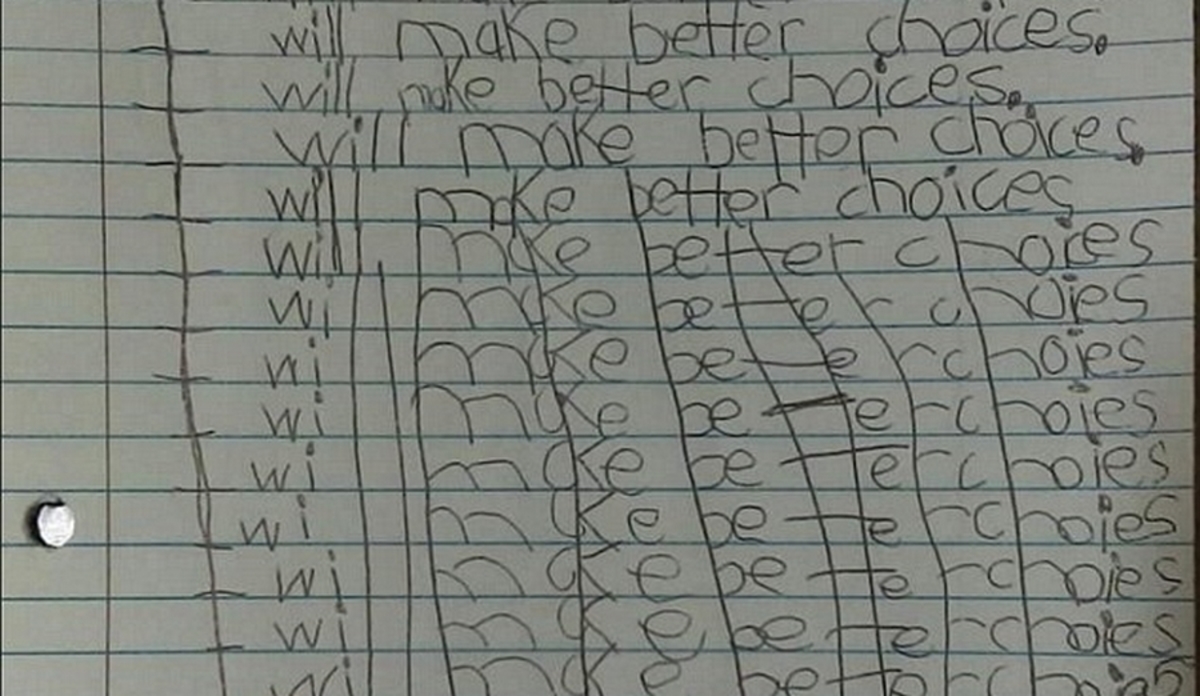 I will make better choices.
I will make better choices.
I will make better choices.
I will make better choices
I will make better choies
I will make better choies
I will make better choies
I will make better choies
I will make better choies
I will make better choies
I will make better choies
I will make better choies
I will make better choies